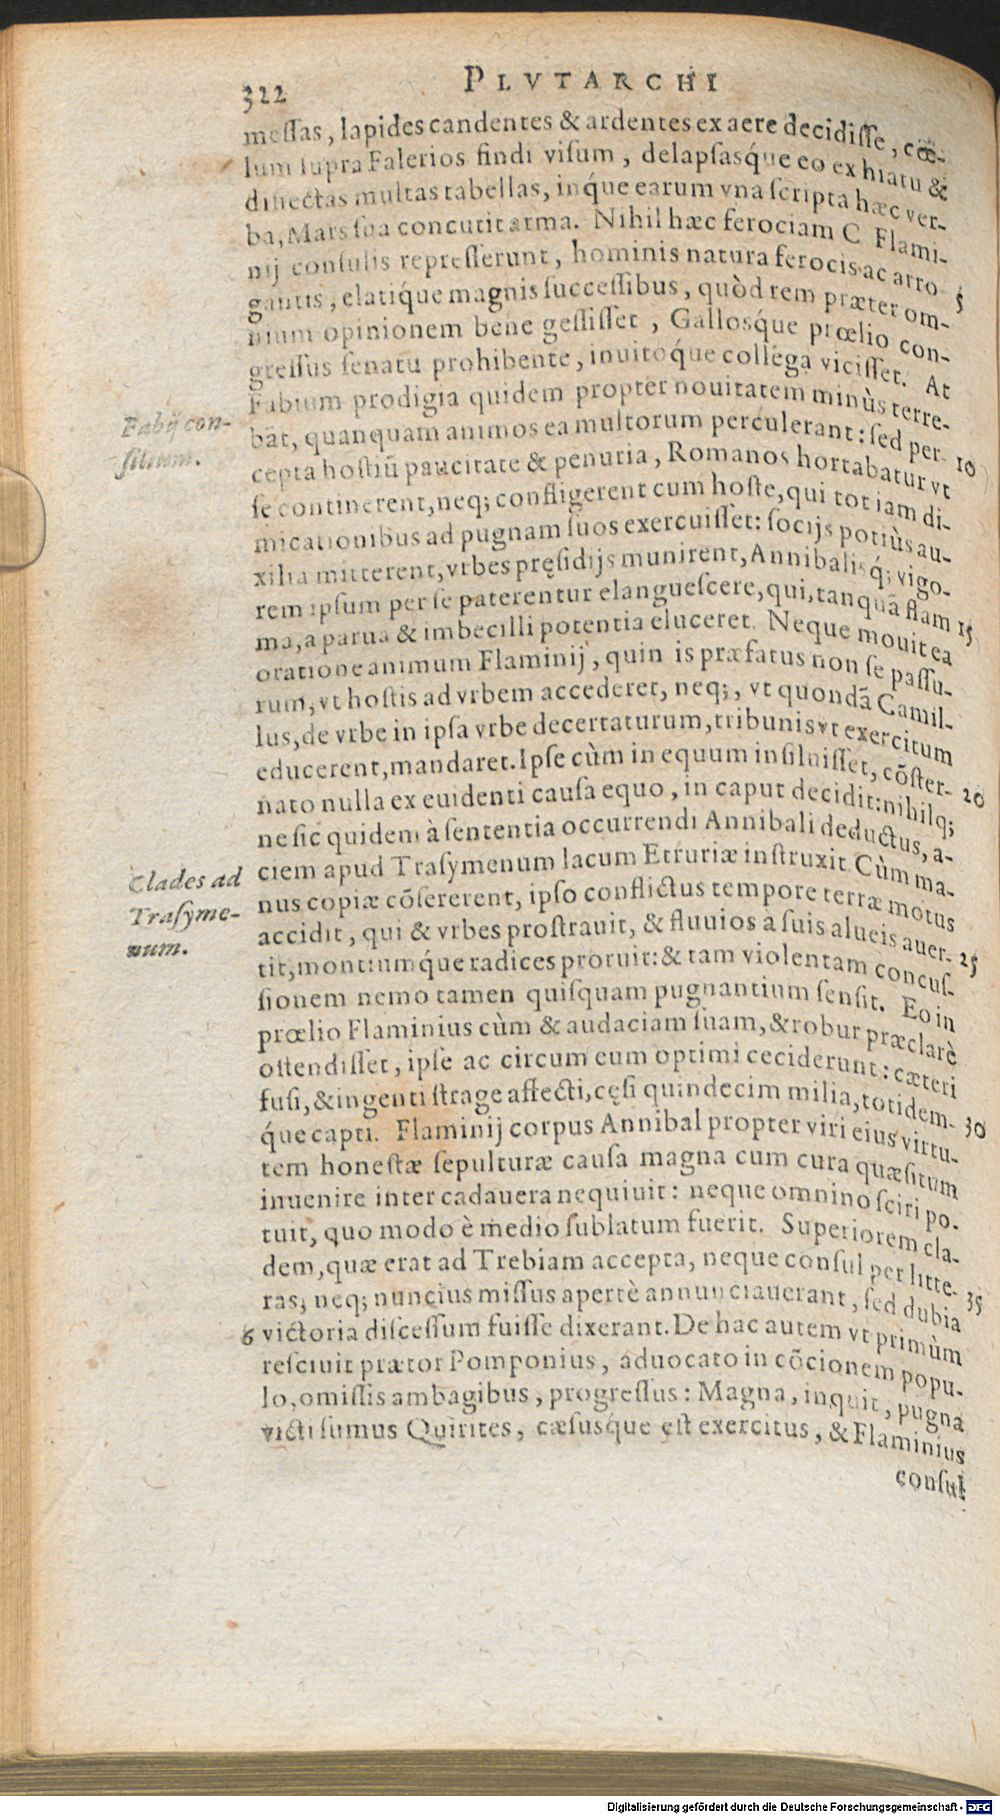 322 PLVTARCHI
meſſas, lapides candentes & ardentes ex aere decidiſſe, cœ-
lum ſupra Falerios findi viſum, delapſasq́ue eo ex hiatu &
diſiectas multas tabellas, inq́ue earum vna ſcripta hæc ver-
ba, Mars ſua concutit arma. Nihil hæc ferociam C Flami-
nij conſulis repreſſerunt, hominis natura ferocis ac arro 5
gantis, elatiq́ue magnis ſucceſſibus, quòd rem præter om-
nium opinionem bene geſſiſſet, Gallosq́ue prœlio con-
greſſus ſenatu prohibente, inuitoq́ue collega viciſſet. At
Fabium prodigia quidem propter nouitatem minùs terre-
Fabij con-
ſilium.
bāt, quanquam animos ea multorum perculerant: ſed per- 10
cepta hoſtiū paucitate & penuria, Romanos hortabatur vt
ſe continerent, neq; confligerent cum hoſte, qui tot iam di-
micationibus ad pugnam ſuos exercuiſſet: ſocijs potiùs au-
xilia mitterent, vrbes pręſidijs munirent, Annibalisq́; vigo-
rem ipſum per ſe paterentur elangueſcere, qui, tanquā flam 15
ma, a parua & imbecilli potentia eluceret. Neque mouit ea
oratione animum Flaminij, quin is præfatus non ſe paſſu-
rum, vt hoſtis ad vrbem accederet, neq;, vt quondā Camil-
lus, de vrbe in ipſa vrbe decertaturum, tribunis vt exercitum
educerent, mandaret. Ipſe cùm in equum inſiluiſſet, cōſter- 20
nato nulla ex euidenti cauſa equo, in caput decidit: nihilq;
ne ſic quidem à ſententia occurrendi Annibali deductus, a-
ciem apud Traſymenum lacum Etruriæ inſtruxit. Cùm ma-
Clades ad
Traſyme-
num.
nus copiæ cōſererent, ipſo conflictus tempore terræ motus
accidit, qui & vrbes proſtrauit, & fluuios a ſuis alueis auer- 25
tit, montiumq́ue radices proruit: & tam violentam concuſ-
ſionem nemo tamen quiſquam pugnantium ſenſit. Eo in
prœlio Flaminius cùm & audaciam ſuam, & robur præclarè
oſtendiſſet, ipſe ac circum eum optimi ceciderunt: cæteri
fuſi, & ingenti ſtrage affecti, cęſi quindecim milia, totidem- 30
q́ue capti. Flaminij corpus Annibal propter viri eius virtu-
tem honeſtæ ſepulturæ cauſa magna cum cura quæſitum
inuenire inter cadauera nequiuit: neque omnino ſciri po-
tuit, quo modo è medio ſublatum fuerit. Superiorem cla-
dem, quæ erat ad Trebiam accepta, neque conſul per litte- 35
ras, neq; nuncius miſſus apertè annunciauerant, ſed dubia
6 victoria diſceſſum fuiſſe dixerant. De hac autem vt primùm
reſciuit prætor Pomponius, aduocato in cōcionem popu-
lo, omiſſis ambagibus, progreſſus: Magna, inquit, pugna
victi ſumus Quirites, cæſusq́ue eſt exercitus, & Flaminius
conſul
Digitalisierung gefördert durch die Deutsche Forschungsgemeinschaft - DFG